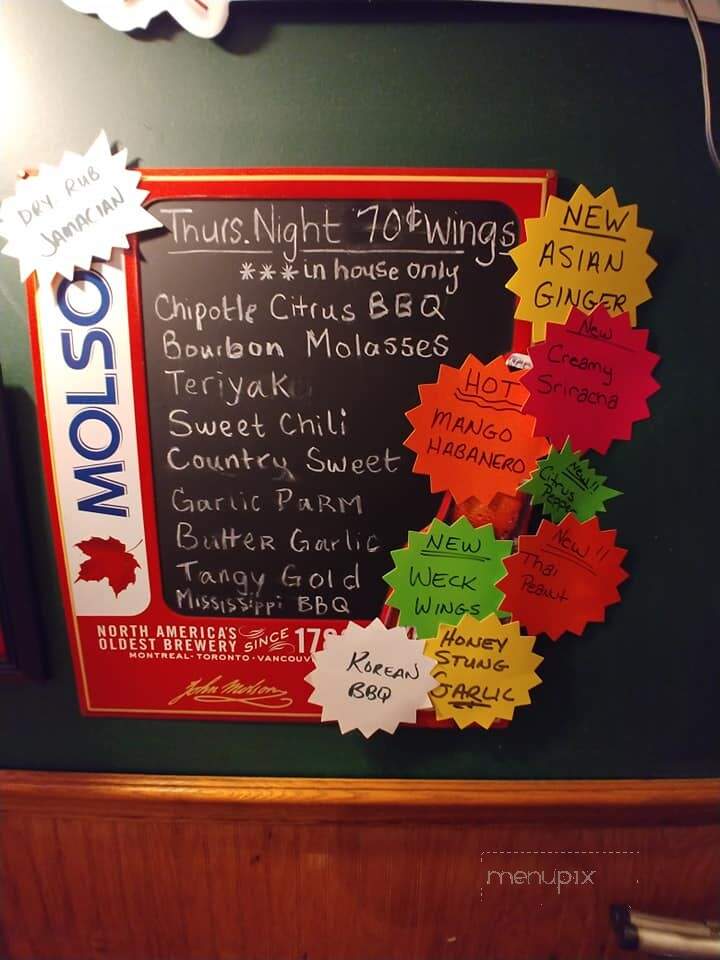 DRY RUB
JAMACIAN
Thurs. Night 70¢ Wings
*** in house only
Chipotle Citrus BBQ
Bourbon Molasses
Teriyak
Sweet Chili
Country Sweet
Garlic PARM
Butter Garlic
Tangy Gold
Mississippi BBQ
MOLSO
NORTH AMERICA'S
OLDEST BREWERY SINCE 17
MONTREAL · TORONTO · VANCOUV
John Molson
NEW
ASIAN
GINGER
New
Creamy
Sriracha
HOT
MANGO
HABANERO
New!!
Citrus
Pepper
NEW
WECK
WINGS
New!!
Thai
Peanut
KOREAN
BBQ
HONEY
STUNG
GARLIC
menupix